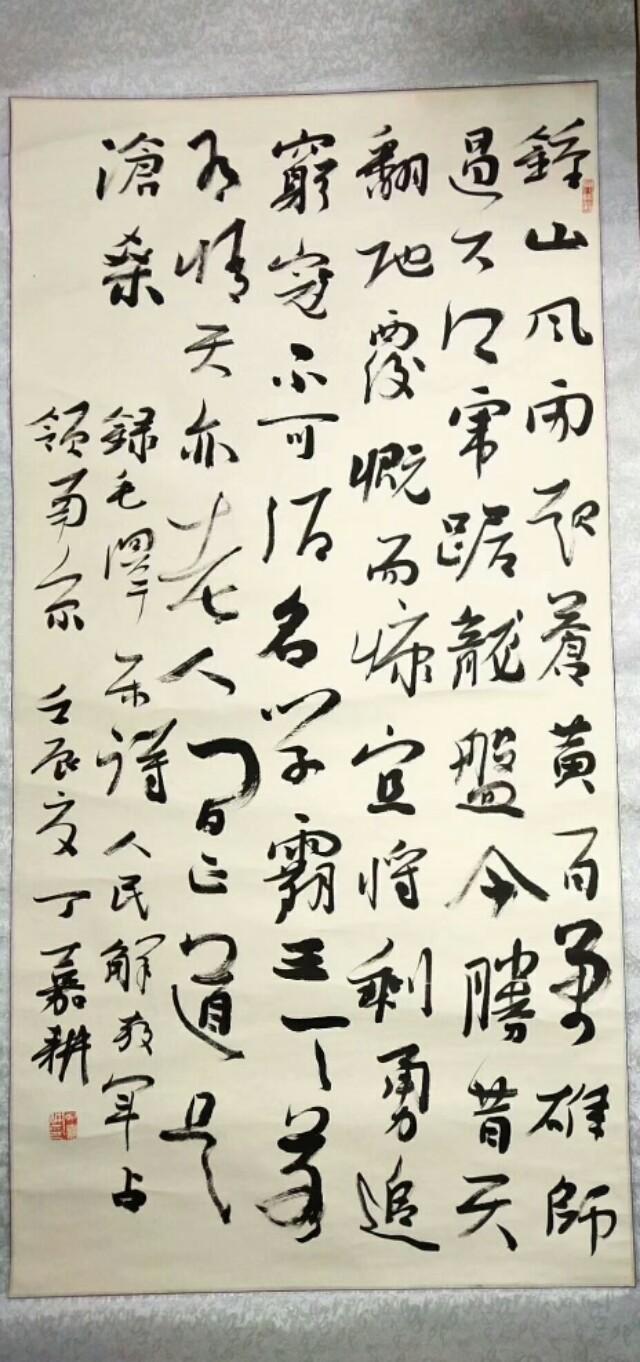 鍾山風雨起蒼黃百萬雄師
過大江虎踞龍盤今勝昔天
翻地覆慨而慷宜將剩勇追
窮寇不可沽名學霸王天若
有情天亦老人間正道是
滄桑
錄毛澤東詩人民解放軍占
領南京 壬辰夏 丁嘉耕